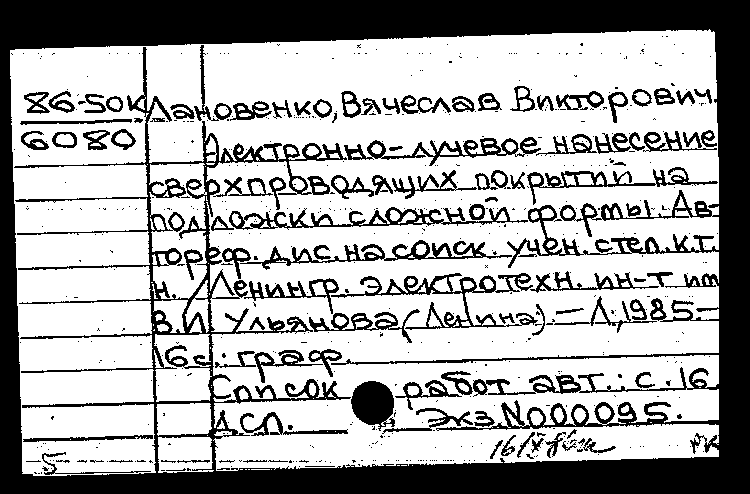 86-50К Лановенко, Вячеслав Викторович.
6080
Электронно-лучевое нанесение
сверхпроводящих покрытий на
подложки сложной формы: Ав-
тореф. дис. на соиск. учен. степ. к.т.
н. / Ленингр. электротехн. ин-т им
В.И. Ульянова (Ленина). — Л., 1985.—
16 с.: граф.
Список работ авт.: с. 16
ДСП. Экз. N000095.
5